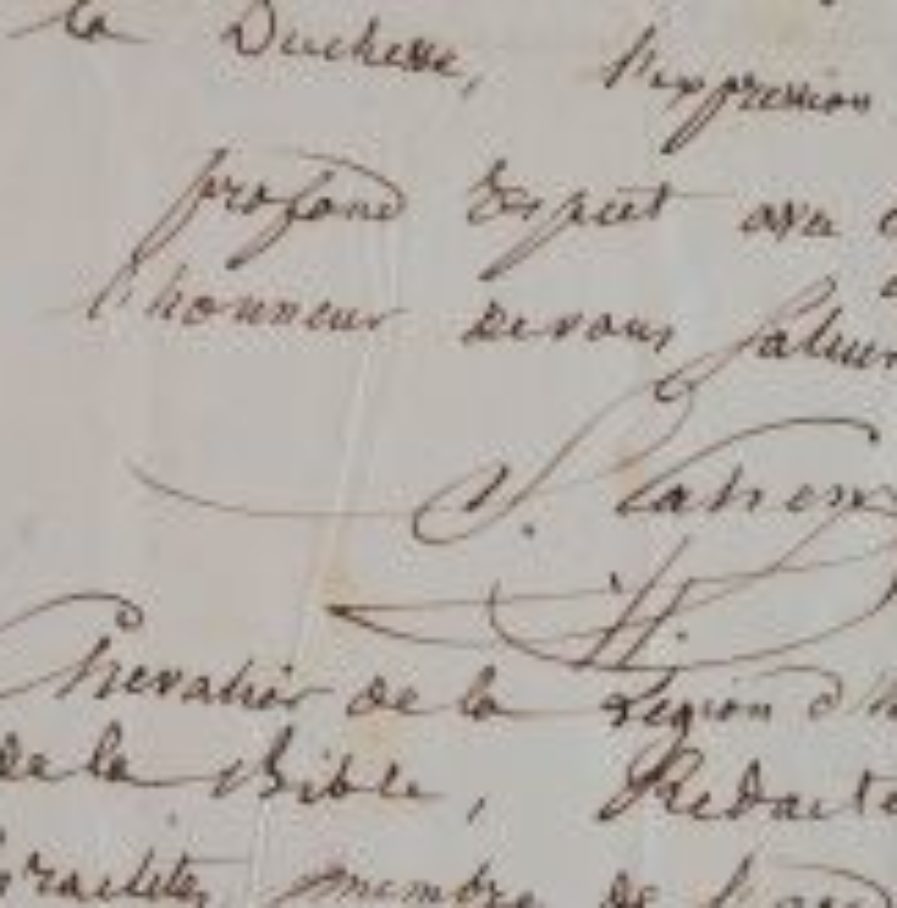 la Duchesse, l'expression
profond respect avec
l'honneur de vous saluer
S. Cahen
Chevalier de la Légion d'h
de la Bible, Rédacte
sraélites, membre de l'